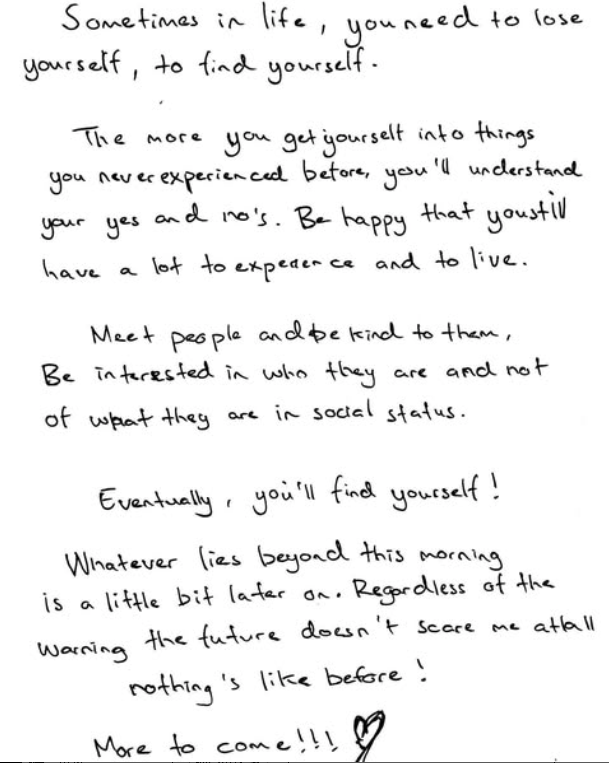 Sometimes in life, you need to lose
yourself, to find yourself.
The more you get yourself into things
you never experienced before, you'll understand
your yes and no's. Be happy that you still
have a lot to experence and to live.
Meet people and be kind to them,
Be interested in who they are and not
of what they are in social status.
Eventually, you'll find yourself!
Whatever lies beyond this morning
is a little bit later on. Regardless of the
warning the future doesn't scare me at all
nothing's like before!
More to come!!!